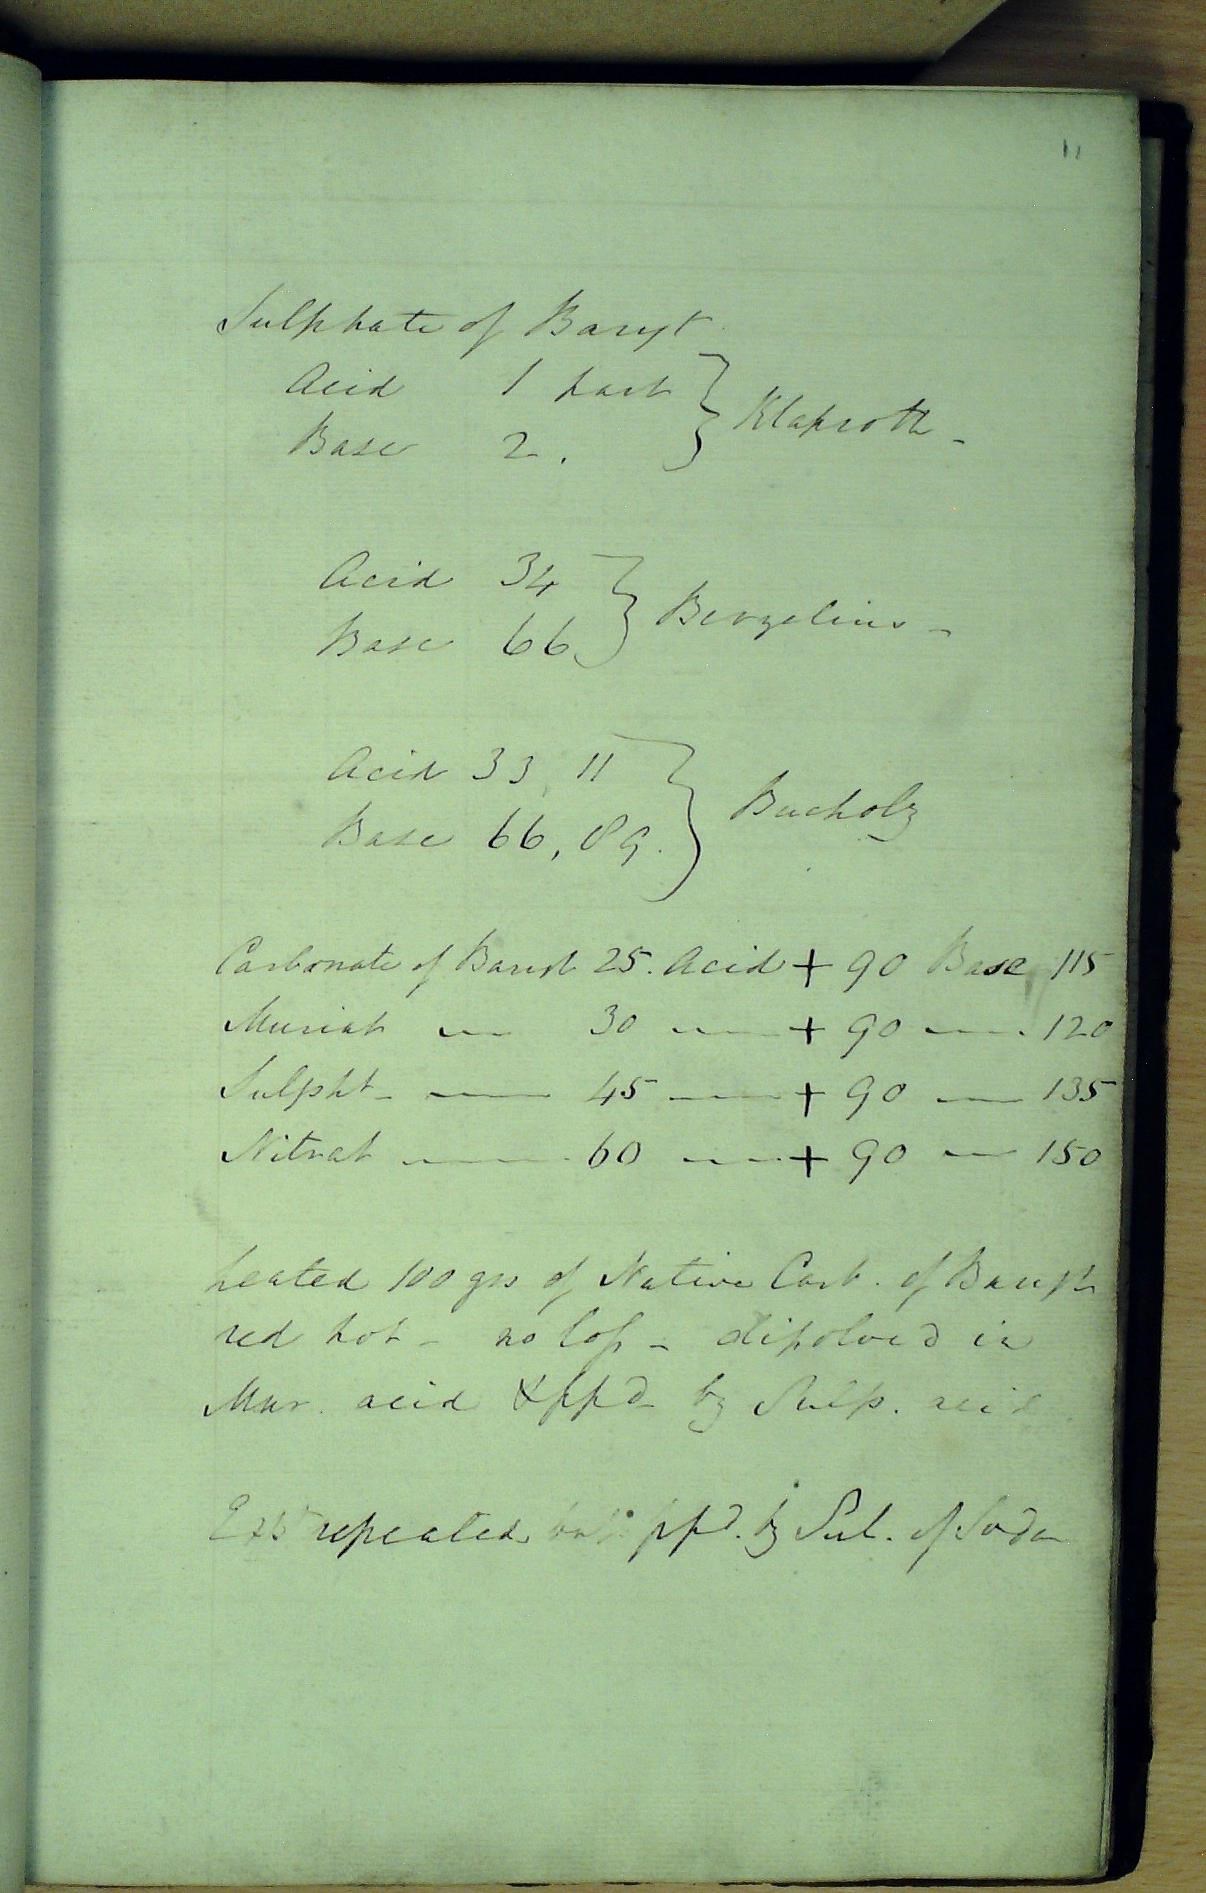 11
Sulphate of Baryt
Acid 1 part
Base 2. } Klaproth -
Acid 34
Base 66 } Berzelius -
Acid 33, 11
Base 66, 89. } Bucholz
Carbonate of Baryt 25. Acid + 90 Base 115
Muriat — 30 — + 90 — 120
Sulpht - — 45 — + 90 — 135
Nitrat — 60 — + 90 — 150
heated 100 grs of Native Carb. of Baryt
red hot - no loss - dissolved in
Mur. acid & ppd by Sulp. acid
Ext repeated but ppd. by Sul. of Soda